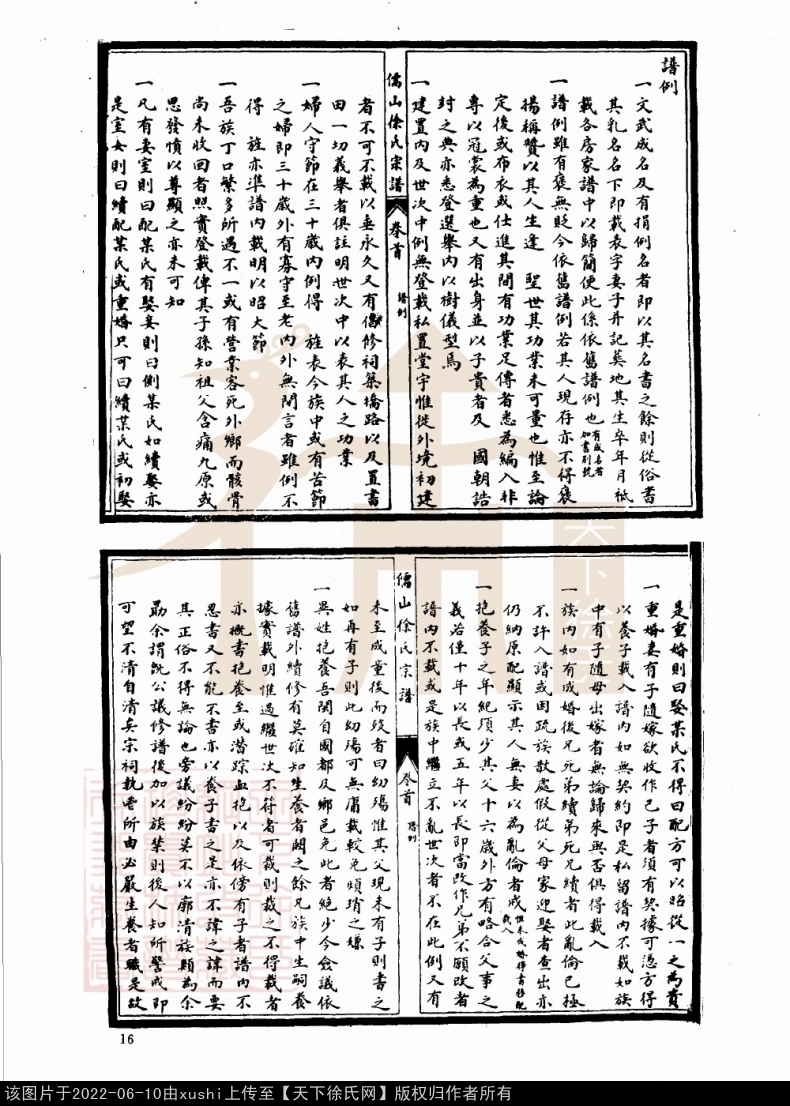 譜例
一文武成名及有捐例名者即以其名書之餘則從俗書
其乳名名下即載表字妻子并記葬地其生卒年月祗
載各房家譜中以歸簡便此係依舊譜例也有成名者加書別號
一譜例雖有褒無貶今依舊譜例若其人現存亦不得褒
揚稱贊以其人生逢 聖世其功業未可量也惟至論
定後或布衣或仕進其間有功業足傳者悉為編入非
專以冠裳為重也又有出身並以子貴者及 國朝誥
封之典亦悉登選舉內以樹儀型焉
一建置內及世次中例無登載私置堂宇惟從外境初建
儒山徐氏宗譜 卷首 譜例
者不可不載以垂永久又有倡修祠築橋路以及置書
田一切義舉者俱註明世次中以表其人之功業
一婦人守節在三十歲內例得 旌表今族中或有苦節
之婦即三十歲外有寡守至老內外無間言者雖例不
得 旌亦準譜內載明以昭大節
一吾族丁口繁多所遇不一或有營業客死外鄉而骸骨
尚未收回者照實登載俾其子孫知祖父含痛九原或
思發憤以尊顯之亦未可知
一凡有妻室則曰配某氏有娶妾則曰側某氏如續娶亦
是室女則曰續配某氏或重婚只可曰續某氏或初娶
是重婚則曰娶某氏不得曰配方可以昭從一之為貴
一重婚妻有子隨嫁欲收作己子者須有契據可憑方得
以養子載入譜內如無契約即是私留譜內不載如族
中有子隨母出嫁者無論歸來與否俱得載入
一族內如有成婚後兄死弟續弟死兄續者此亂倫已極
不許入譜或因疏族散處假從父母家迎娶者查出亦
仍納原配顯示其人無妻以為亂倫者戒惟未成婚得書移配載入
一抱養子之年紀須少其父十六歲外方有略合父事之
義若僅十年以長或五年以長即當改作兄弟不願改者
譜內不載或是族中繼立不亂世次者不在此例又有
儒山徐氏宗譜 卷首 譜例
未至成童後而歿者曰幼殤惟其父現未有子則書之
如再有子則此幼殤可無庸載較免煩瑣之嫌
一異姓抱養吾閩自國都及鄉邑免此者絕少今僉議依
舊譜外續修有莫確知生養者闕之餘凡族中生嗣養
據實載明惟過繼世次不符者可載則載之不得載者
亦概書抱養至或潛踪血抱以及依傍有子者譜內不
忍書又不能不書亦以養子書之是亦不諱之諱而要
其正俗不得無論也旁議紛紛莫不以廓清族類為余
勖余謂既公議修譜後加以族禁則後人知所警戒即
可望不清自清矣宗祠執事所由必嚴生養者職是故
16
该图片于2022-06-10由xushi上传至【天下徐氏网】版权归作者所有